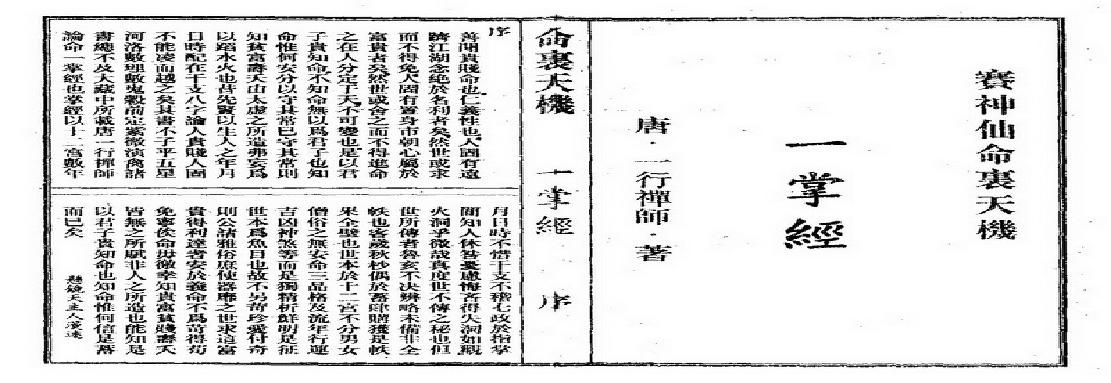 賽神仙命裏天機
一掌經
唐·一行禪師·著
命裏天機 一掌經 序
序
貴賤命也仁義性也人固有遠
躋江湖念絕於名利者矣然世或求
而不得免人固有置身市朝心屬於
富貴者矣然世或舍之而不得進命
之在人分定于天不可變也是以君
子貴知命不知命無以爲君子也知
命惟何安分以守其常已守其常則
知貧富壽夭太虛之所造弗妄爲
以蹈水火也昔先賢以生人之年月
日時配在干支八字論人貴賤人固
不能凌而越之矣其書不子平五星
河洛數理數鬼穀前定紫微演禽諸
書總不及大藏中所載唐一行禪師
論命一掌經也掌經以十二宮數年
月日時不惜干支不稽七政於指掌
間知人休咎憂慮悔吝得失洞如觀
火洞乎微哉真度世不傳之秘也但
世所傳者魯亥不決辨略未備非全
帙也客歲秋杪偶於舊肆購獲是帙
果全璧也世本於十二宮不分男女
僧俗之無安命三品格及流年行運
吉凶神煞等而是獨精析鮮明足征
世本爲魚目也故不另苛珍愛付奇
則公諸雅俗庶使器塵之世求這富
貴得利達者安於義命不爲苛得苟
免寧俟命毋徼幸知貴富貧賤壽夭
皆無之所賦非人之所造也能知是
以君子貴知命也知命惟何信足常
而已矣 主人漢述